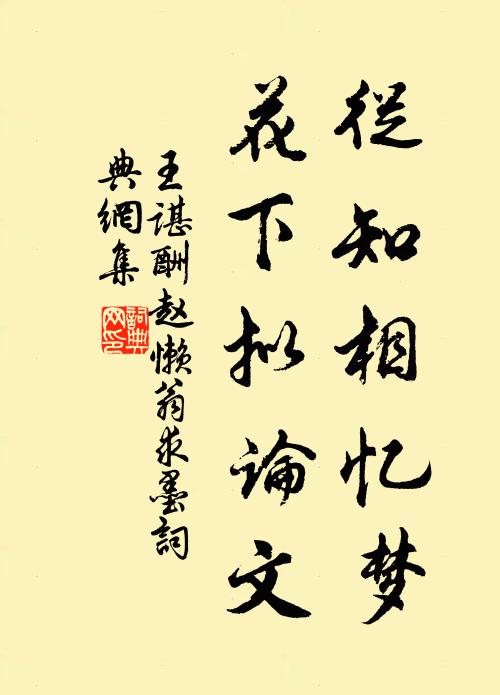 從知相忆梦
花下拟論文
王諶酬赵懒翁求墨詞
典網集
詞典
网印